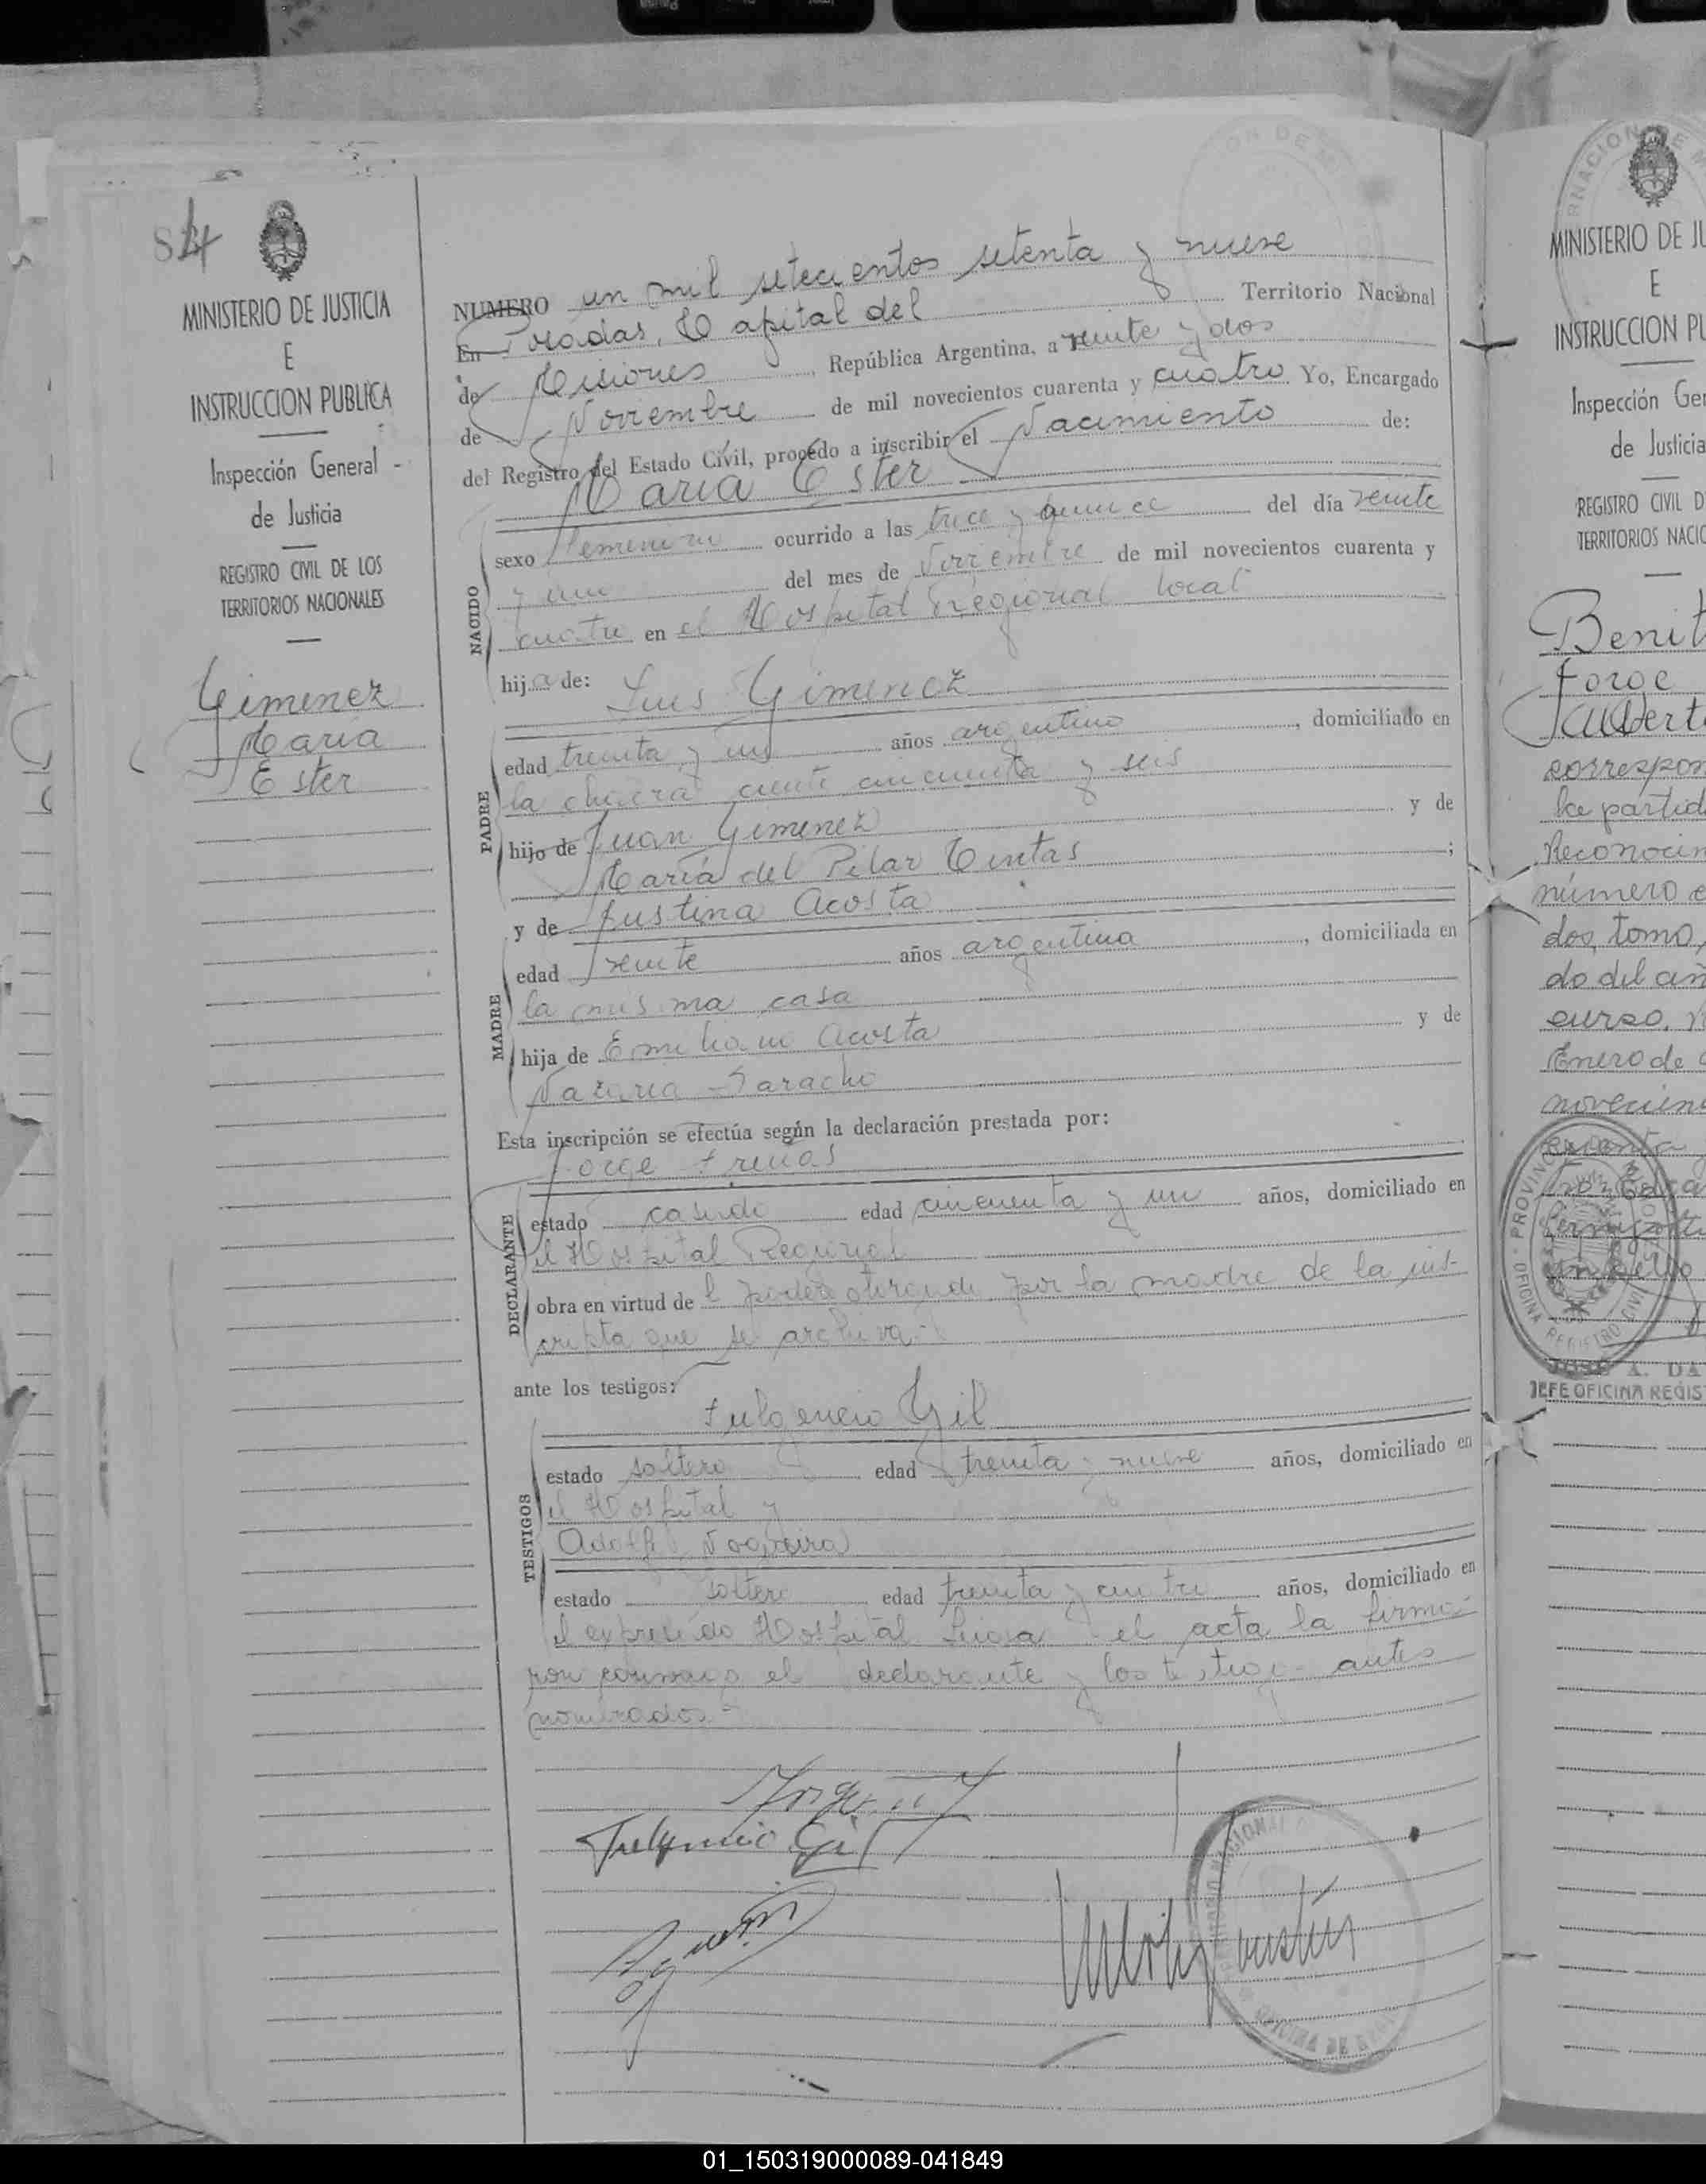 84
MINISTERIO DE JUSTICIA
E
INSTRUCCION PUBLICA
Inspección General
de Justicia
REGISTRO CIVIL DE LOS
TERRITORIOS NACIONALES
Gimenez
Maria
Ester
NUMERO un mil setecientos setenta y nueve
En Posadas, Capital del Territorio Nacional
de Misiones, República Argentina, a veinte y dos
de Noviembre de mil novecientos cuarenta y cuatro Yo, Encargado
del Registro del Estado Civil, procedo a inscribir el Nacimiento de:
Maria Ester
NACIDO
sexo femenino ocurrido a las trece y quince del día veinte
y uno del mes de Noviembre de mil novecientos cuarenta y
cuatro en el Hospital Regional local
hija de: Luis Gimenez
PADRE
edad treinta y un años argentino, domiciliado en
la chacra ciento cincuenta y seis
hijo de Juan Gimenez y de
María del Pilar;
y de Justina Acosta
MADRE
edad veinte años argentina, domiciliada en
la misma casa
hija de Emiliano Acosta y de
Nazaria Saracho
Esta inscripción se efectúa según la declaración prestada por:
Jorge
DECLARANTE
estado casado edad cincuenta y un años, domiciliado en
el Hospital Regional
obra en virtud del poder otorgado por la madre de la ins-
cripta que se archiva.-
ante los testigos:
Fulgencio Gil
TESTIGOS
estado soltero edad treinta y nueve años, domiciliado en
el Hospital y
Adolfo Nogueira
estado soltero edad treinta y cuatro años, domiciliado en
el expresado Hospital el acta la firma-
ron conmigo el declarante y los testigos antes
nombrados.-
Fulgencio Gil
MINISTERIO DE JU
E
INSTRUCCION PU
Inspección Gen
de Justicia
REGISTRO CIVIL D
TERRITORIOS NACIO
Benit
Jorge
Albert
correspon
la partid
Reconocim
número c
dos, tomo,
do del añ
curso.
Enero de
PROVINC
OFICINA REGISTRO CIVIL
JOSE A. DA
JEFE OFICINA REGIS
01_150319000089-041849